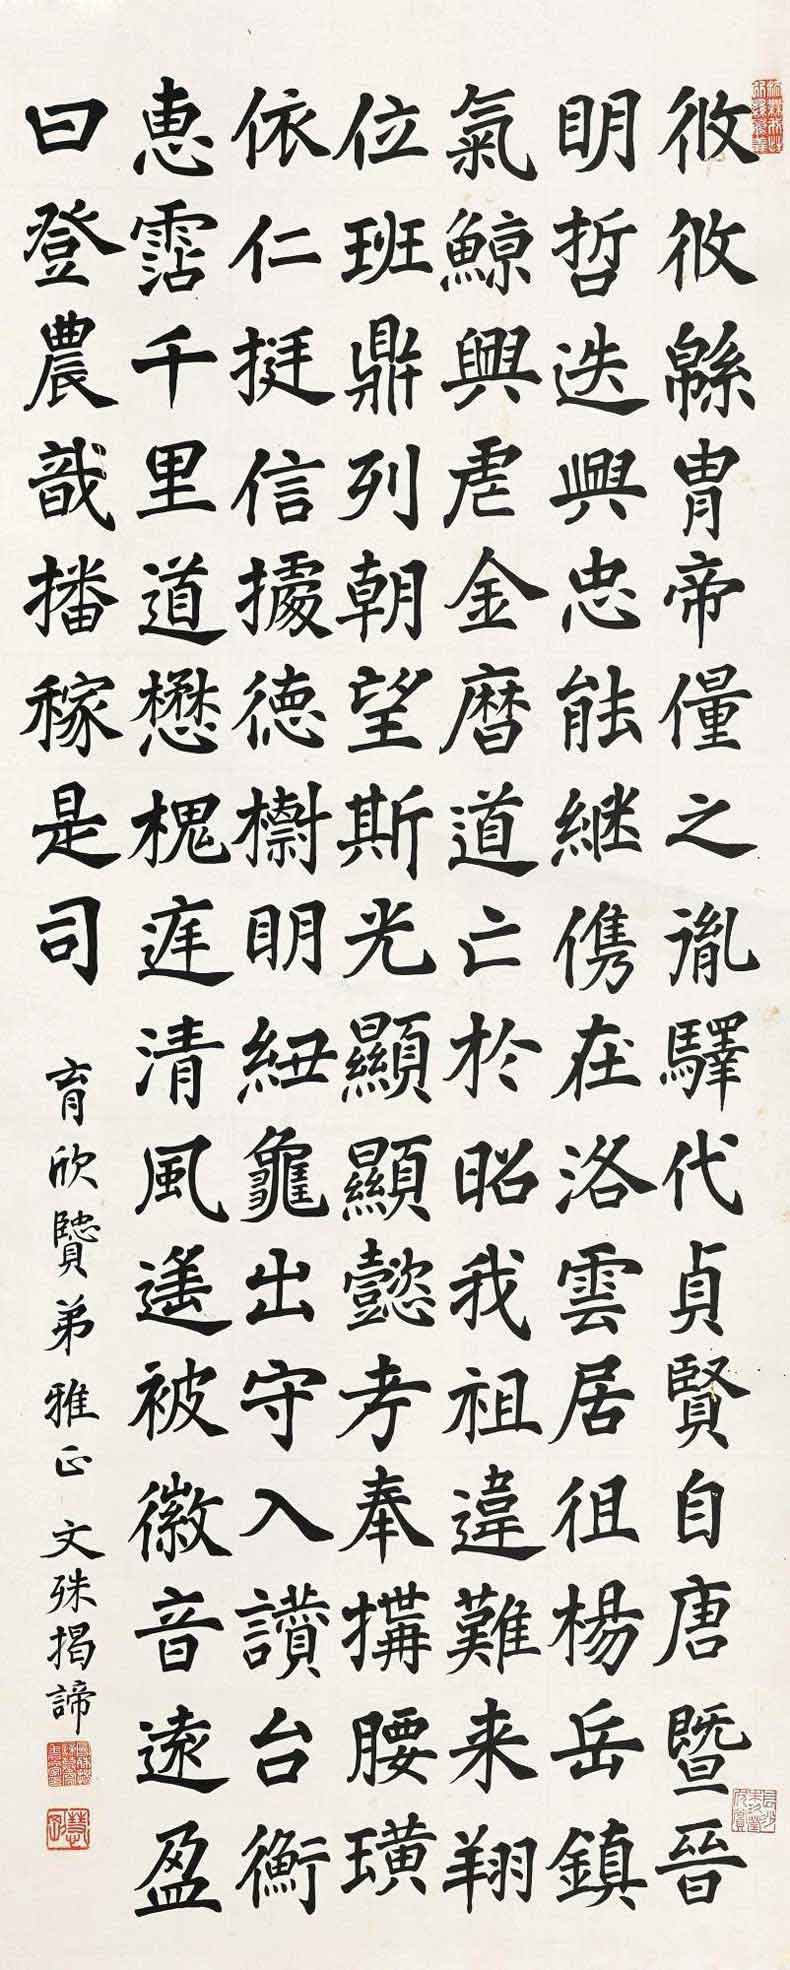 攸攸緜胄帝僮之胤驛代貞賢自唐暨晉
明哲迭興忠能継儁在洛雲居徂楊岳鎮
氣鯨興虐金曆道亡於昭我祖違難来翔
位班鼎列朝望斯光顯顯懿考奉搆腰璜
依仁挺信據德樹明紐龜出守入讃台衡
惠霑千里道懋槐庭清風遙被徽音遠盈
曰登農戠播稼是司
育欣賢弟雅正 文殊揭諦